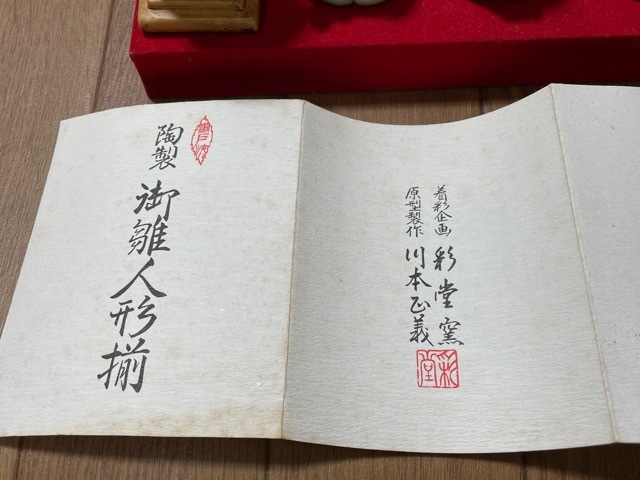 陶製
御雛人形揃
着彩企画 彩堂窯
原型製作 川本正義
彩堂